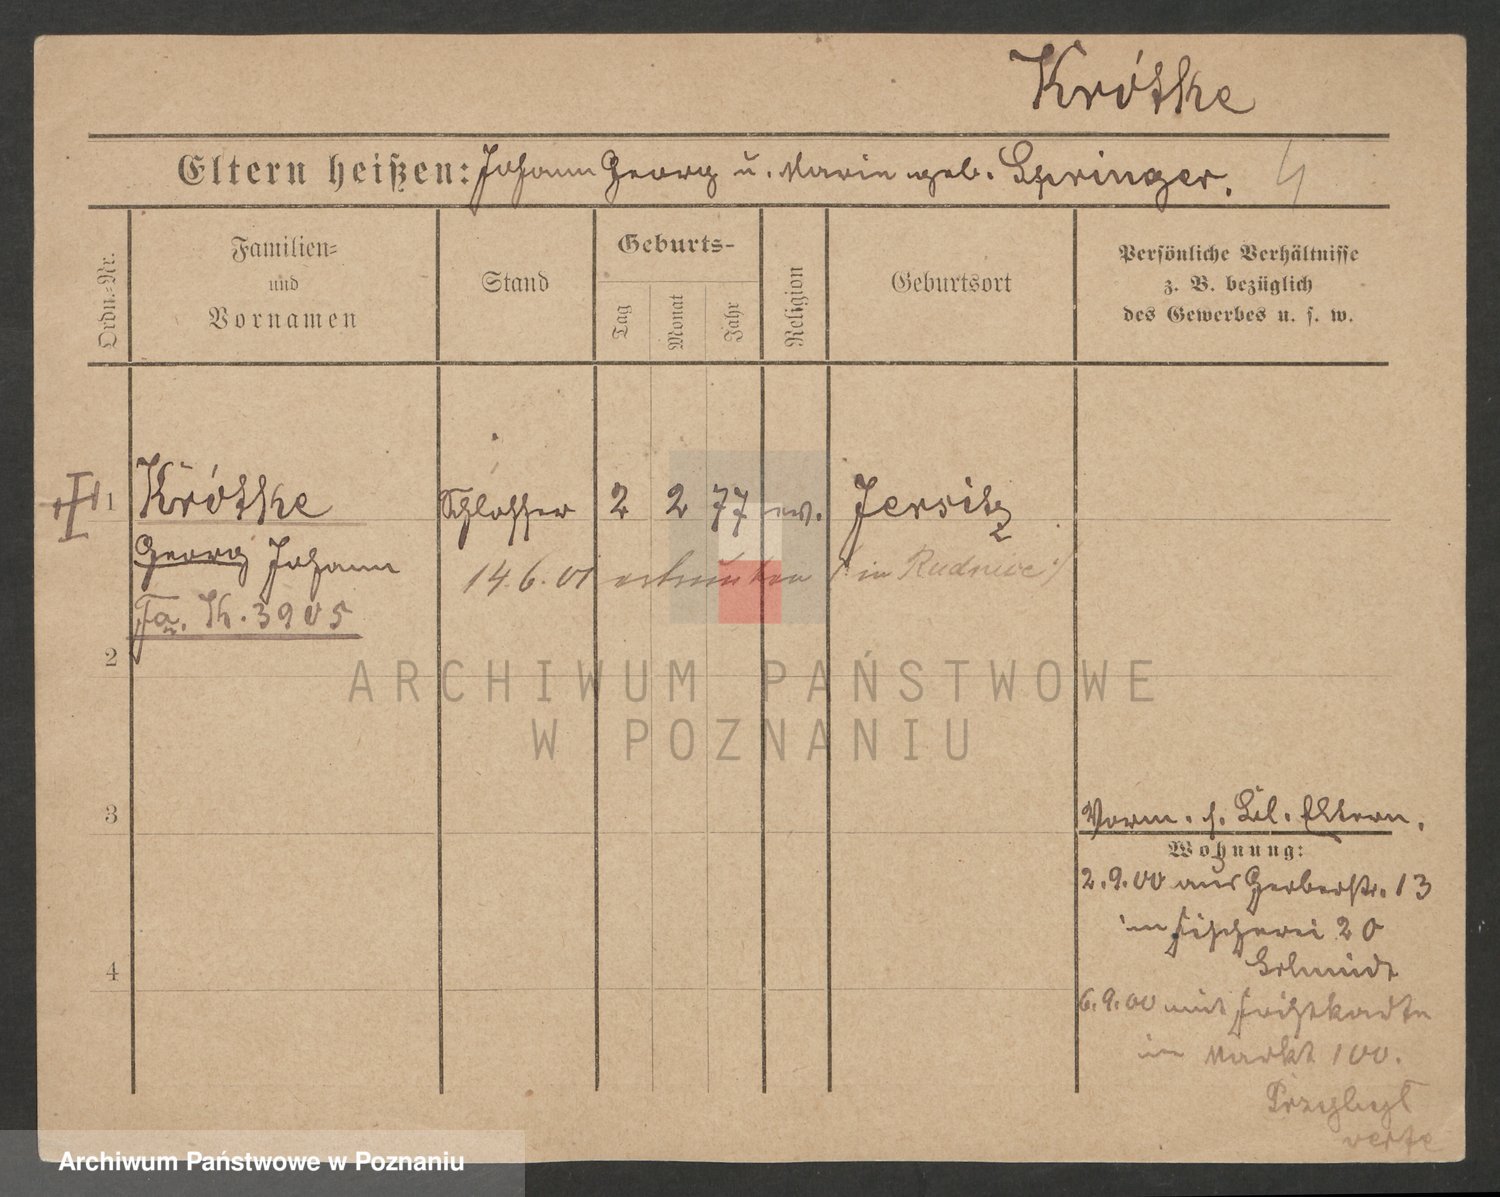 Krótke
Eltern heißen: Johann Georg u. Marie geb. Springer.
Ordn.-Nr.
Familien-
und
Vornamen
Stand
Geburts-
Tag
Monat
Jahr
Religion
Geburtsort
Persönliche Verhältnisse
z. B. bezüglich
des Gewerbes u. s. w.
1
Krótke Schlosser 2 2 77 ev. Jersitz
Georg Johann
14.6.01 ertrunken (: in Rudnicze :)
Fa. K. 3905
2
ARCHIWUM PAŃSTWOWE
W POZNANIU
3
Vorm. s. Bl. Eltern.
Wohnung:
2.9.00 aus Gerberstr. 13
in Fischerei 20
Schmidt
4
6.9.00 mit
in Markt 100.
verte
Archiwum Państwowe w Poznaniu